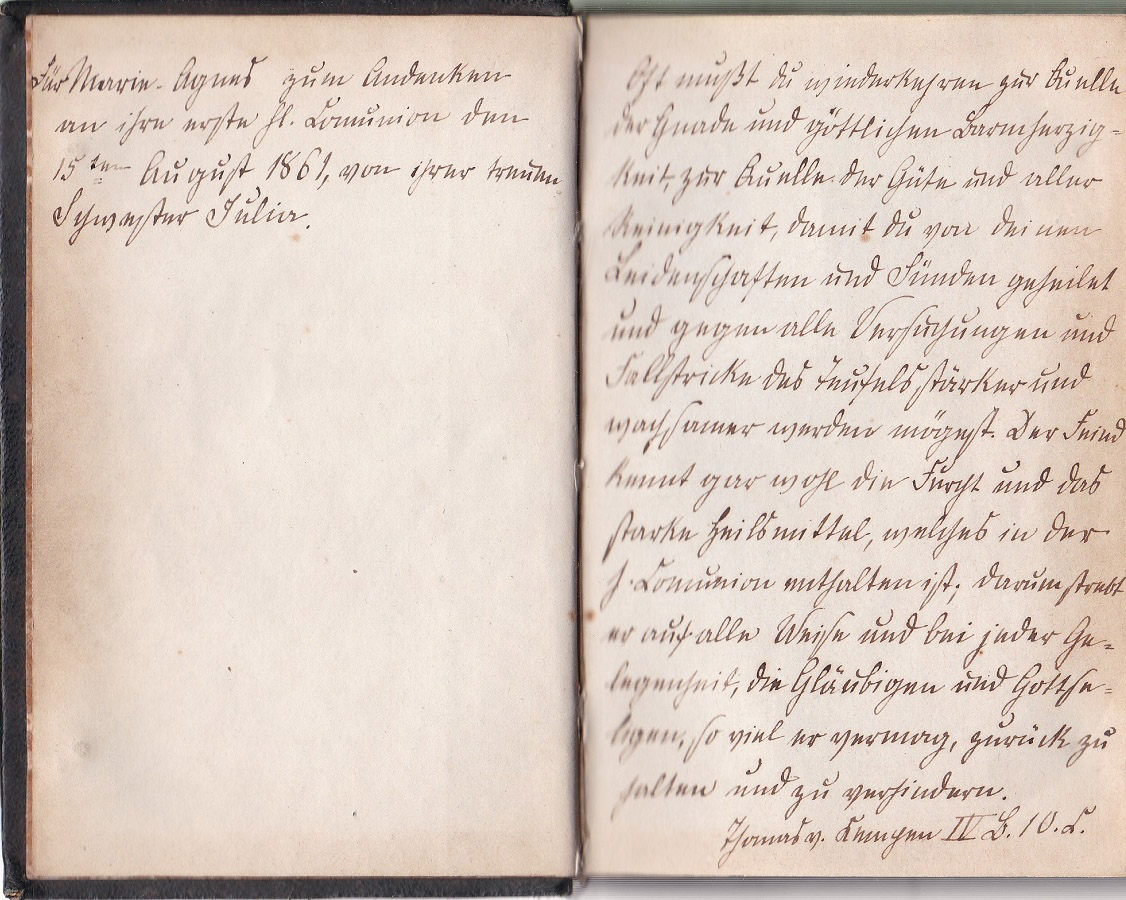 Für Marie-Agnes zum Andenken
an ihre erste hl. Comunion den
15ten August 1861, von ihrer treuen
Schwester Julia.
Oft mußt du wiederkehren zur Quelle
der Gnade und göttlichen Barmherzig=
keit, zur Quelle der Güte und aller
Reinigkeit, damit du von deinen
Leidenschaften und Sünden geheilet
und gegen alle Versuchungen und
Fallstricke des Teufels stärker und
wachsamer werden mögest. Der Feind
kennt gar wohl die Furcht und das
starke Heilsmittel, welches in der
h. Comunion enthalten ist; darum strebt
er auf alle Weise und bei jeder Ge=
legenheit, die Gläubigen und Gottse=
ligen, so viel er vermag, zurück zu
halten und zu verhindern.
Thomas v. Kempen IV B. 10. C.